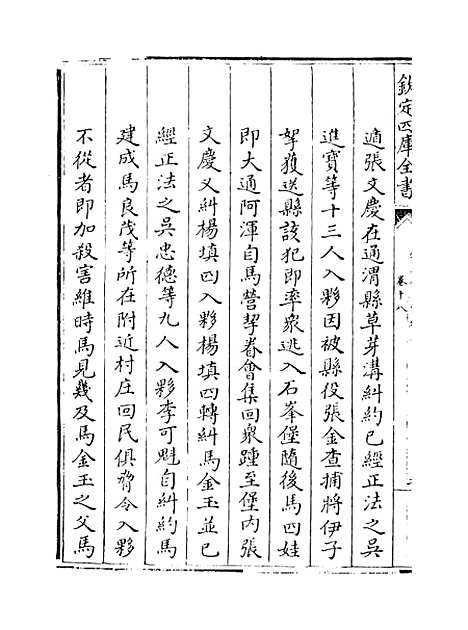 欽定四庫全書
卷十八
遁張文慶在通渭縣草芽溝糾約已經正法之吳
進寶等十三人入夥因被縣役張金查捕將伊子
拏獲送縣該犯即率眾逃入石峯堡隨後馬四娃
即大通阿渾自馬營挈眷會集回衆踵至堡內張
文慶又糾楊填四入夥楊填四轉糾馬金玉並已
經正法之吳忠德等九人入夥李可魁自糾約馬
建成馬良茂等所在附近村庄回民俱脅令入夥
不從者即加殺害維時馬見幾及馬金玉之父馬